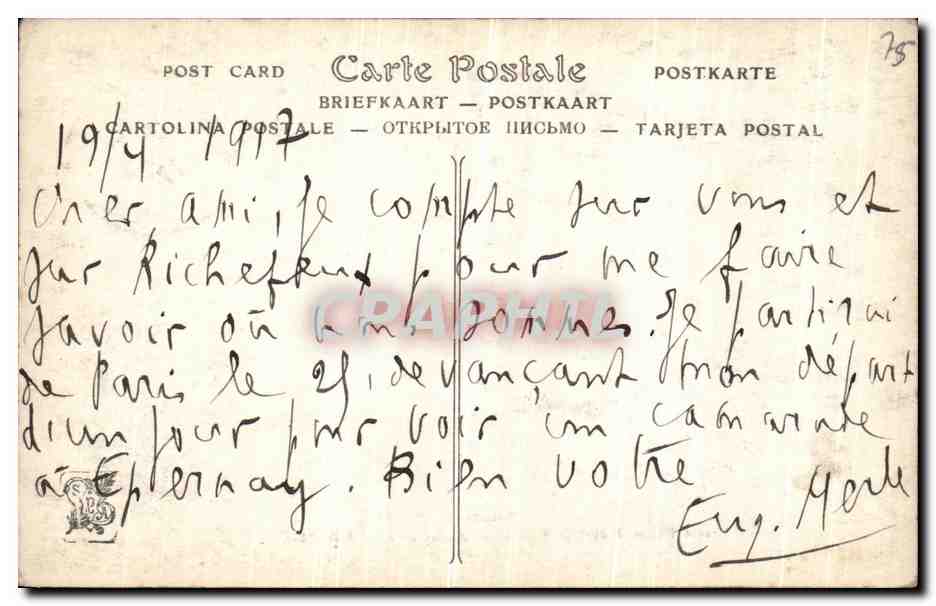 75
POST CARD Carte Postale POSTKARTE
BRIEFKAART — POSTKAART
CARTOLINA POSTALE — ОТКРЫТОЕ ПИСЬМО — TARJETA POSTAL
19/4 1917
Cher ami, je compte sur vous et
sur Richefeux pour me faire
savoir où nous sommes. Je partirai
de Paris le 25, devançant mon départ
d'un jour pour voir un camarade
à Epernay. Bien votre
Eug. Merle
CRAPHIL